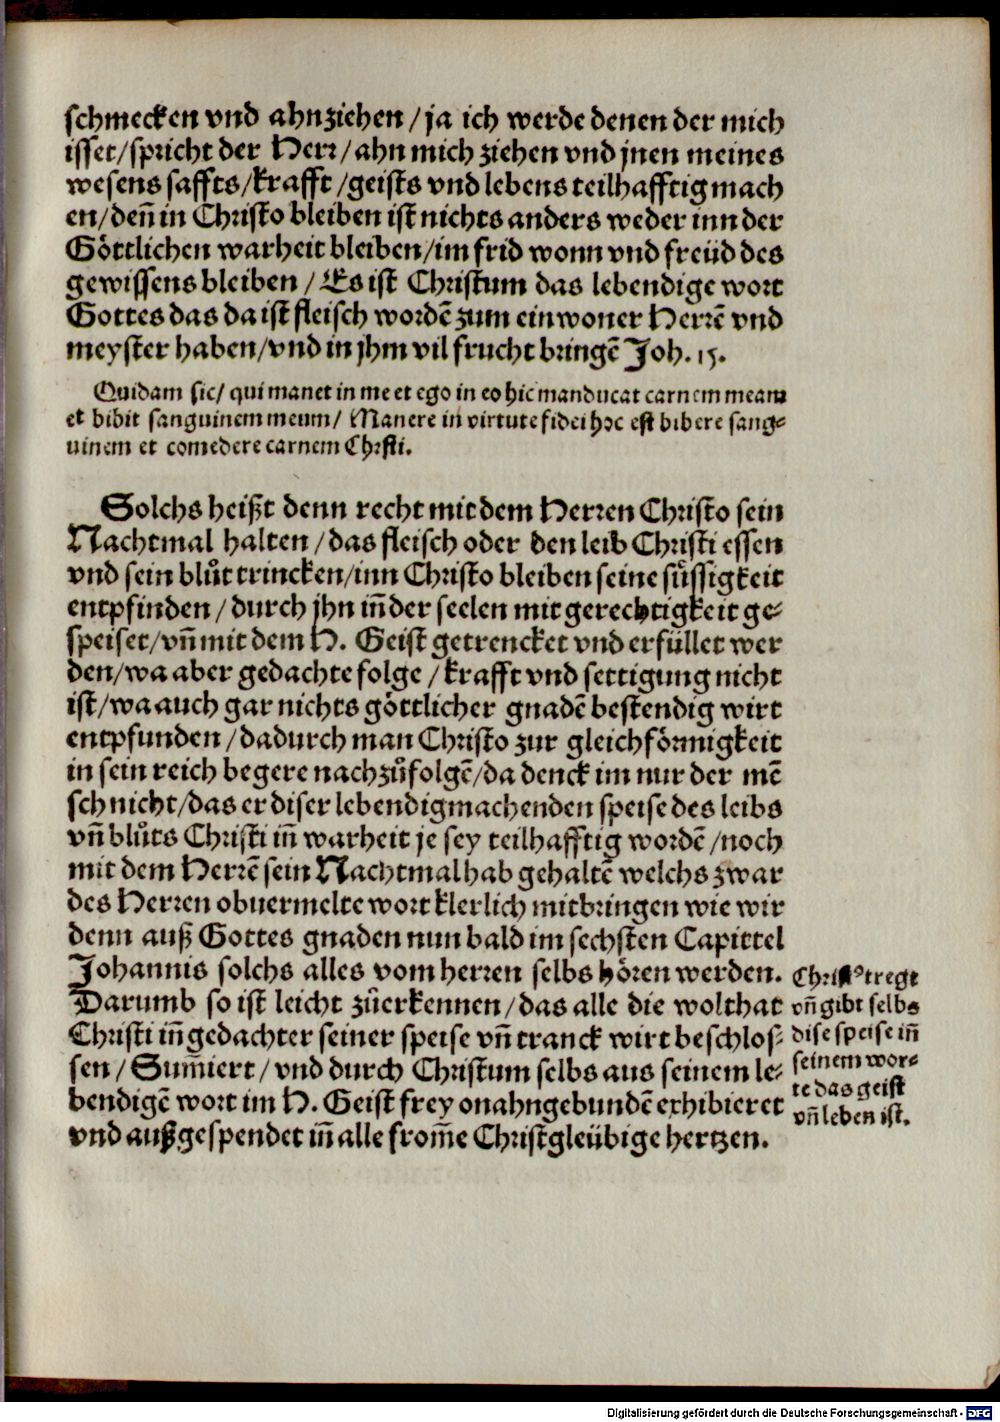 schmecken vnd ahnziehen / ja ich werde denen der mich
isset / spricht der Herr / ahn mich ziehen vnd jnen meines
wesens saffts / krafft / geists vnd lebens teilhafftig mach
en / deñ in Christo bleiben ist nichts anders weder inn der
Göttlichen warheit bleiben / im frid wonn vnd freüd des
gewissens bleiben / Es ist Christum das lebendige wort
Gottes das da ist fleisch wordẽ zum einwoner Herrẽ vnd
meyster haben / vnd in jhm vil frucht bringẽ Joh. 15.
Quidam sic / qui manet in me et ego in eo hic manducat carnem meam
et bibit sanguinem meum / Manere in virtute fidei hoc est bibere sang⸗
uinem et comedere carnem Christi.
Solchs heißt denn recht mit dem Herren Christo sein
Nachtmal halten / das fleisch oder den leib Christi essen
vnd sein blůt trincken / inn Christo bleiben seine süssigkeit
entpfinden / durch jhn iñ der seelen mit gerechtigkeit ge⸗
speiset / vñ mit dem H. Geist getrencket vnd erfüllet wer
den / wa aber gedachte folge / krafft vnd settigung nicht
ist / wa auch gar nichts göttlicher gnadẽ bestendig wirt
entpfunden / dadurch man Christo zur gleichförmigkeit
in sein reich begere nachzůfolgẽ / da denck im nur der mẽ
sch nicht / das er diser lebendigmachenden speise des leibs
vñ blůts Christi iñ warheit je sey teilhafftig wordẽ / noch
mit dem Herrẽ sein Nachtmal hab gehaltẽ welchs zwar
des Herren obuermelte wort klerlich mitbringen wie wir
denn auß Gottes gnaden nun bald im sechsten Capittel
Johannis solchs alles vom herren selbs hören werden.
Darumb so ist leicht zůerkennen / das alle die wolthat
Christi iñ gedachter seiner speise vñ tranck wirt beschlos⸗
sen / Sum̃iert / vnd durch Christum selbs aus seinem le⸗
bendigẽ wort im H. Geist frey onahngebundẽ exhibieret
vnd außgespendet iñ alle from̃e Christgleübige hertzen.
Christꝰ tregt
vñ gibt selbs
dise speise iñ
seinem wor⸗
te das geist
vñ leben ist.
Digitalisierung gefördert durch die Deutsche Forschungsgemeinschaft - DFG